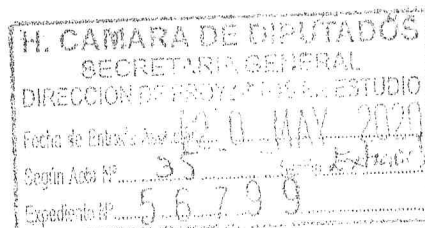 H. CAMARA DE DIPUTADOS
SECRETARIA GENERAL
DIRECCION DE PROYECTOS EN ESTUDIO
Fecha de Entrada 20 MAY 2020
Según Acta Nº 35
Expediente Nº 56799